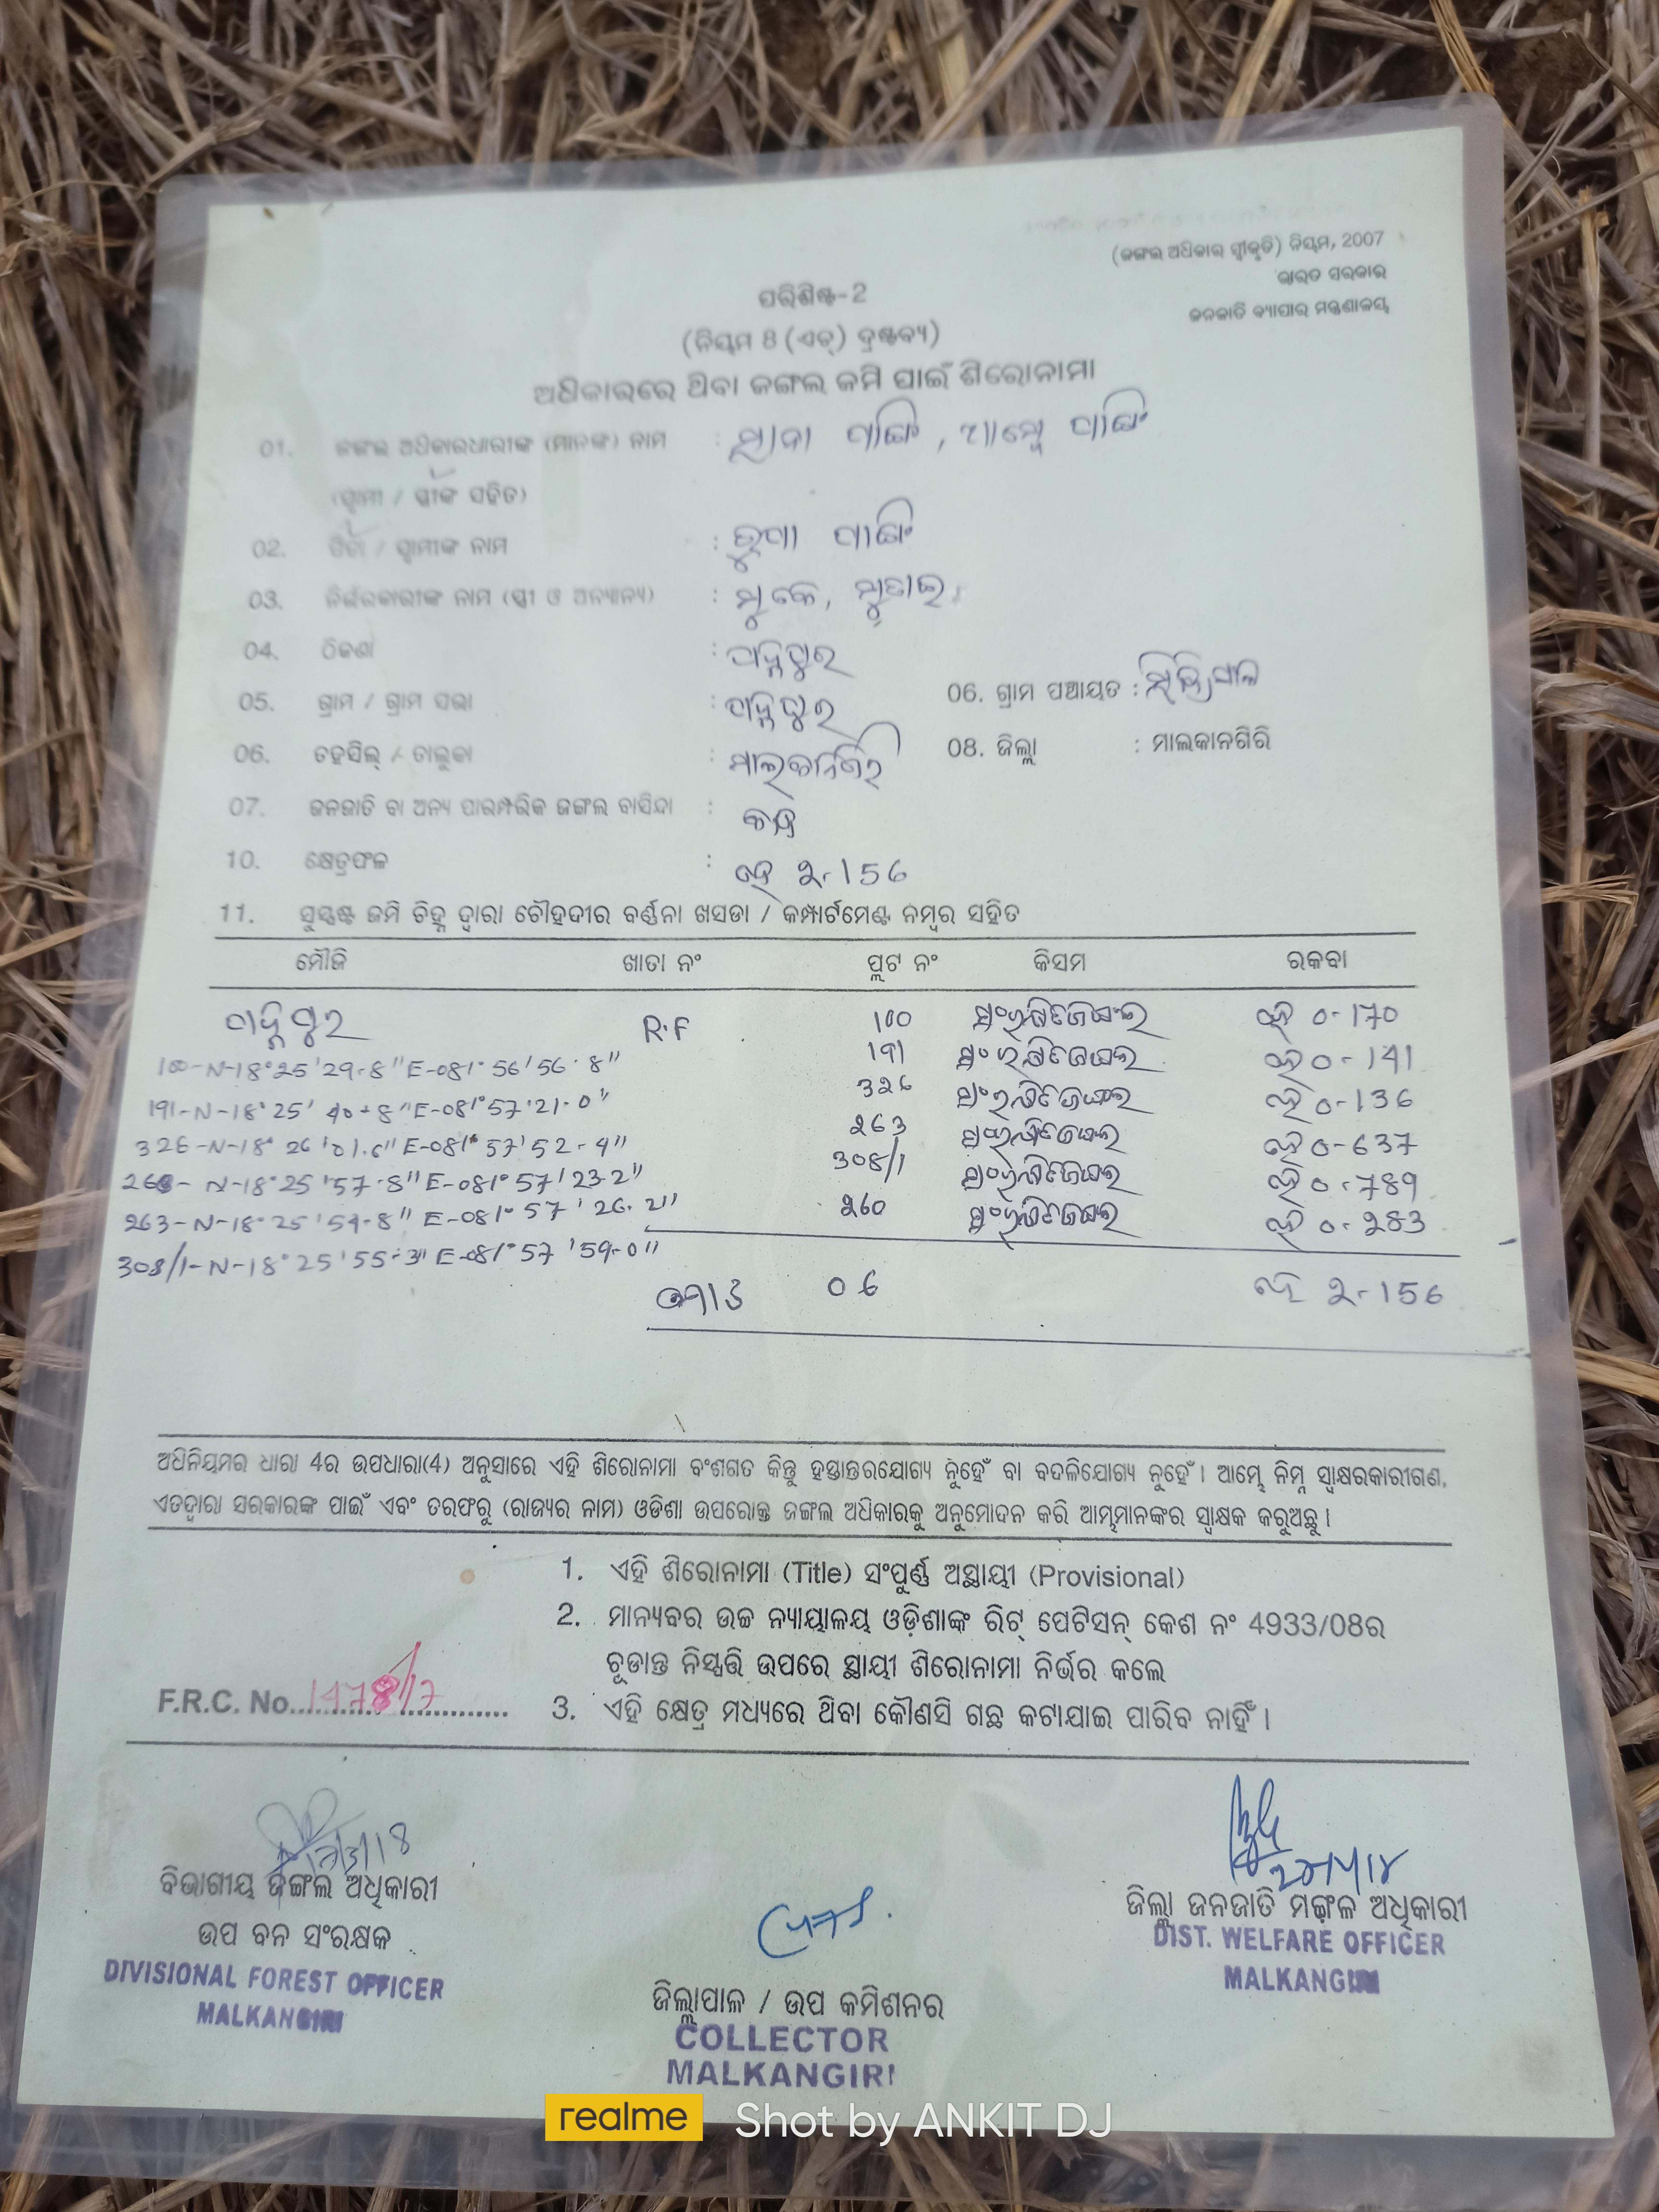 (ଜଙ୍ଗଲ ଅଧିକାର ସ୍ୱୀକୃତି) ନିୟମ, 2007
ଭାରତ ସରକାର
ଜନଜାତି ବ୍ୟାପାର ମନ୍ତ୍ରଣାଳୟ
ପରିଶିଷ୍ଟ-2
(ନିୟମ 8 (ଏଚ୍) ଦ୍ରଷ୍ଟବ୍ୟ)
ଅଧିକାରରେ ଥିବା ଜଙ୍ଗଲ ଜମି ପାଇଁ ଶିରୋନାମା
01. ଜଙ୍ଗଲ ଅଧିକାରଧାରୀଙ୍କ (ମାନଙ୍କ) ନାମ :
(ସ୍ୱାମୀ / ସ୍ତ୍ରୀଙ୍କ ସହିତ)
02. ପିତା / ସ୍ୱାମୀଙ୍କ ନାମ :
03. ନିର୍ଭରକାରୀଙ୍କ ନାମ (ସ୍ତ୍ରୀ ଓ ଅନ୍ୟାନ୍ୟ) :
04. ଠିକଣା :
05. ଗ୍ରାମ / ଗ୍ରାମ ସଭା : 06. ଗ୍ରାମ ପଞ୍ଚାୟତ :
06. ତହସିଲ୍ / ତାଲୁକା : ମାଲକାନଗିରି 08. ଜିଲ୍ଲା : ମାଲକାନଗିରି
07. ଜନଜାତି ବା ଅନ୍ୟ ପାରମ୍ପରିକ ଜଙ୍ଗଲ ବାସିନ୍ଦା :
10. କ୍ଷେତ୍ରଫଳ : ହେ ୨-156
11. ସୁସ୍ପଷ୍ଟ ଜମି ଚିହ୍ନ ଦ୍ୱାରା ଚୌହଦୀର ବର୍ଣ୍ଣନା ଖସଡା / କମ୍ପାର୍ଟମେଣ୍ଟ ନମ୍ବର ସହିତ
ମୌଜି ଖାତା ନଂ ପ୍ଲଟ ନଂ କିସମ ରକବା
R.F 100 ହେ 0-170
100-N-18°25'29.8"E-081°56'56.8" 191 ହେ 0-141
191-N-18°25'40.8"E-081°57'21.0" 326 ହେ 0-136
326-N-18°26'01.6"E-081°57'52.4" 263 ହେ 0-637
N-18°25'57.8"E-081°57'23.2" 308/1 ହେ 0-789
263-N-18°25'54.8"E-081°57'26.2" 260 ହେ 0-283
308/1-N-18°25'55.3"E-081°57'59.0"
06 ହେ ୨-156
ଅଧିନିୟମର ଧାରା 4ର ଉପଧାରା(4) ଅନୁସାରେ ଏହି ଶିରୋନାମା ବଂଶଗତ କିନ୍ତୁ ହସ୍ତାନ୍ତରଯୋଗ୍ୟ ନୁହେଁ ବା ବଦଳିଯୋଗ୍ୟ ନୁହେଁ। ଆମ୍ଭେ ନିମ୍ନ ସ୍ୱାକ୍ଷରକାରୀଗଣ,
ଏତଦ୍ଦ୍ୱାରା ସରକାରଙ୍କ ପାଇଁ ଏବଂ ତରଫରୁ (ରାଜ୍ୟର ନାମ) ଓଡିଶା ଉପରୋକ୍ତ ଜଙ୍ଗଲ ଅଧିକାରକୁ ଅନୁମୋଦନ କରି ଆମ୍ଭମାନଙ୍କର ସ୍ୱାକ୍ଷକ କରୁଅଛୁ।
1. ଏହି ଶିରୋନାମା (Title) ସଂପୁର୍ଣ୍ଣ ଅସ୍ଥାୟୀ (Provisional)
2. ମାନ୍ୟବର ଉଚ୍ଚ ନ୍ୟାୟାଳୟ ଓଡ଼ିଶାଙ୍କ ରିଟ୍ ପେଟିସନ୍ କେଶ ନଂ 4933/08ର
ଚୂଡାନ୍ତ ନିସ୍ପତ୍ତି ଉପରେ ସ୍ଥାୟୀ ଶିରୋନାମା ନିର୍ଭର କଲେ
F.R.C. No. 1478/17
3. ଏହି କ୍ଷେତ୍ର ମଧ୍ୟରେ ଥିବା କୌଣସି ଗଛ କଟାଯାଇ ପାରିବ ନାହିଁ।
ବିଭାଗୀୟ ଜଙ୍ଗଲ ଅଧିକାରୀ
ଉପ ବନ ସଂରକ୍ଷକ
DIVISIONAL FOREST OFFICER
MALKANGIRI
ଜିଲ୍ଲାପାଳ / ଉପ କମିଶନର
COLLECTOR
MALKANGIRI
ଜିଲ୍ଲା ଜନଜାତି ମଙ୍ଗଳ ଅଧିକାରୀ
DIST. WELFARE OFFICER
MALKANGIRI
realme Shot by ANKIT DJ